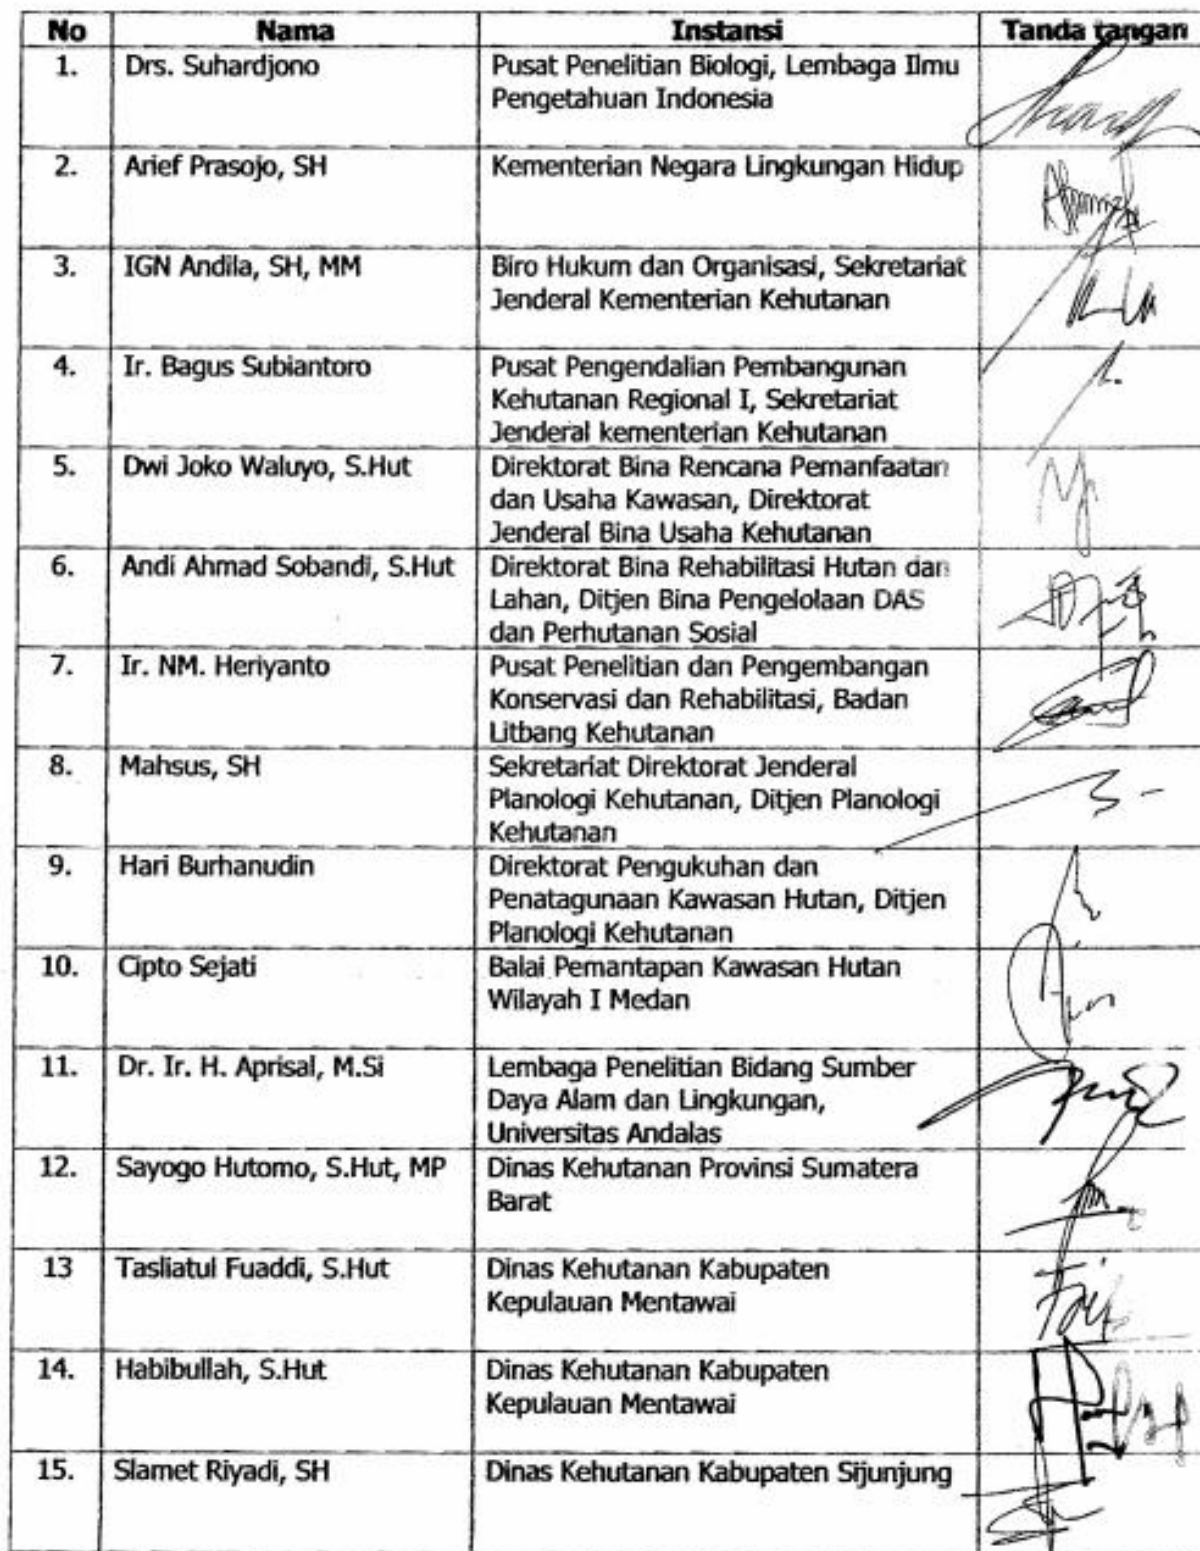 No Nama Instansi Tanda tangan
1. Drs. Suhardjono Pusat Penelitian Biologi, Lembaga Ilmu
Pengetahuan Indonesia
2. Arief Prasojo, SH Kementerian Negara Lingkungan Hidup
3. IGN Andila, SH, MM Biro Hukum dan Organisasi, Sekretariat
Jenderal Kementerian Kehutanan
4. Ir. Bagus Subiantoro Pusat Pengendalian Pembangunan
Kehutanan Regional I, Sekretariat
Jenderal kementerian Kehutanan
5. Dwi Joko Waluyo, S.Hut Direktorat Bina Rencana Pemanfaatan
dan Usaha Kawasan, Direktorat
Jenderal Bina Usaha Kehutanan
6. Andi Ahmad Sobandi, S.Hut Direktorat Bina Rehabilitasi Hutan dan
Lahan, Ditjen Bina Pengelolaan DAS
dan Perhutanan Sosial
7. Ir. NM. Heriyanto Pusat Penelitian dan Pengembangan
Konservasi dan Rehabilitasi, Badan
Litbang Kehutanan
8. Mahsus, SH Sekretariat Direktorat Jenderal
Planologi Kehutanan, Ditjen Planologi
Kehutanan
9. Hari Burhanudin Direktorat Pengukuhan dan
Penatagunaan Kawasan Hutan, Ditjen
Planologi Kehutanan
10. Cipto Sejati Balai Pemantapan Kawasan Hutan
Wilayah I Medan
11. Dr. Ir. H. Aprisal, M.Si Lembaga Penelitian Bidang Sumber
Daya Alam dan Lingkungan,
Universitas Andalas
12. Sayogo Hutomo, S.Hut, MP Dinas Kehutanan Provinsi Sumatera
Barat
13 Tasliatul Fuaddi, S.Hut Dinas Kehutanan Kabupaten
Kepulauan Mentawai
14. Habibullah, S.Hut Dinas Kehutanan Kabupaten
Kepulauan Mentawai
15. Slamet Riyadi, SH Dinas Kehutanan Kabupaten Sijunjung